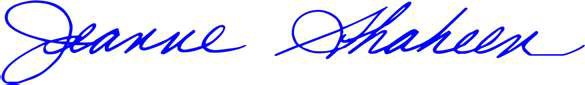 Jeanne Shaheen